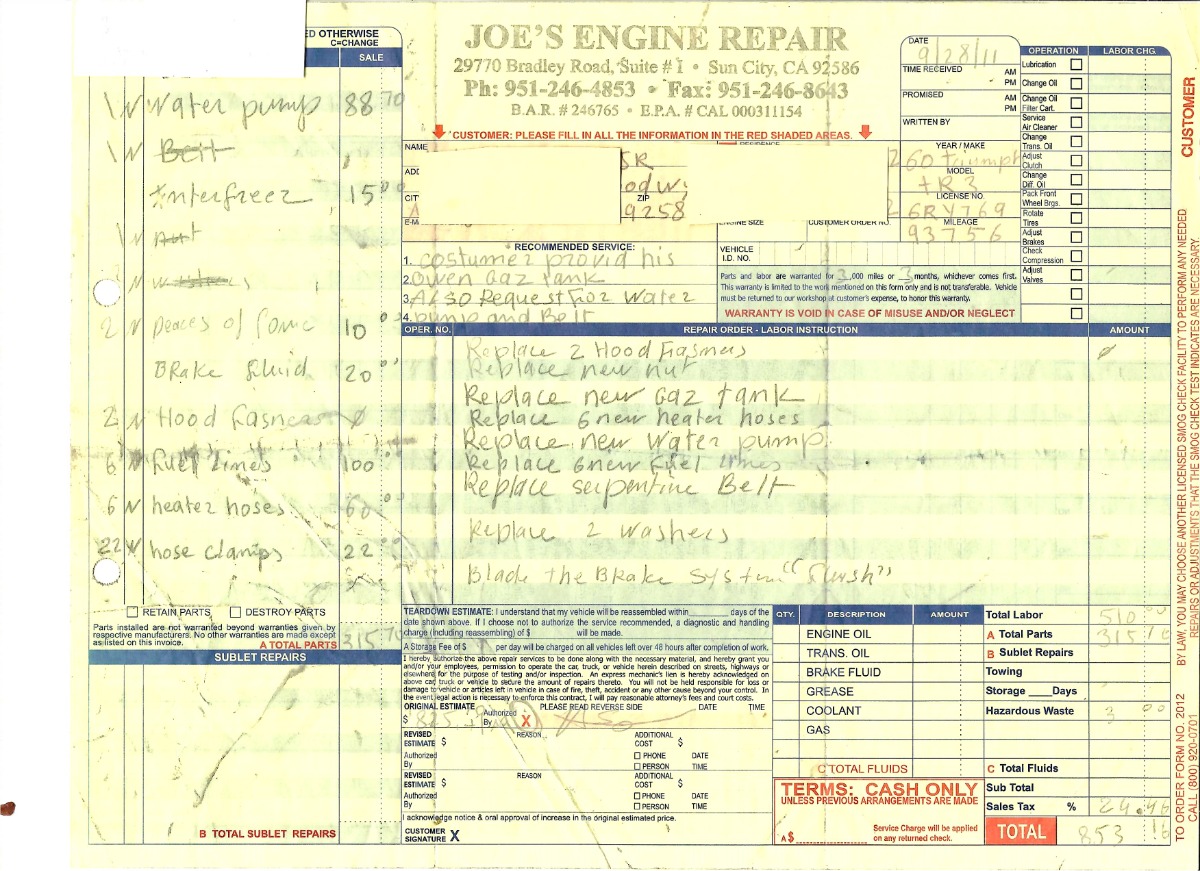 ED OTHERWISE
C=CHANGE
SALE
1 N Water pump 88 70
1 N Belt
Anterfreez 15 00
1 N Nut
N
2 N peaces of 10 00
BRake Fluid 20 00
2 N Hood Fasners Ø
6 N fuel Lines 100 00
6 N heater hoses 60 00
22 N hose clamps 22 00
RETAIN PARTS DESTROY PARTS
Parts installed are not warranted beyond warranties given by
respective manufacturers. No other warranties are made except
as listed on this invoice.
A TOTAL PARTS 315 70
SUBLET REPAIRS
B TOTAL SUBLET REPAIRS
JOE'S ENGINE REPAIR
29770 Bradley Road, Suite # 1 • Sun City, CA 92586
Ph: 951-246-4853 • Fax: 951-246-8643
B.A.R. # 246765 • E.P.A. # CAL 000311154
CUSTOMER: PLEASE FILL IN ALL THE INFORMATION IN THE RED SHADED AREAS.
DATE 9/28/11
TIME RECEIVED AM PM
PROMISED AM PM
WRITTEN BY
NAME
SR
YEAR / MAKE
60 triumph
MODEL
tR3
ZIP
9258
LICENSE NO.
6RY769
ENGINE SIZE CUSTOMER ORDER NO. MILEAGE
93756
RECOMMENDED SERVICE:
1. costumer provid his
2. owen Gaz tank
3. Also Request For Water
4. pump and Belt
VEHICLE
I.D. NO.
Parts and labor are warranted for 3,000 miles or 3 months, whichever comes first.
This warranty is limited to the work mentioned on this form only and is not transferable. Vehicle
must be returned to our workshop at customer's expense, to honor this warranty.
WARRANTY IS VOID IN CASE OF MISUSE AND/OR NEGLECT
OPERATION LABOR CHG.
Lubrication
Change Oil
Change Oil
Filter Cart.
Service
Air Cleaner
Change
Trans. Oil
Adjust
Clutch
Change
Diff. Oil
Pack Front
Wheel Brgs.
Rotate
Tires
Adjust
Brakes
Check
Compression
Adjust
Valves
OPER. NO. REPAIR ORDER - LABOR INSTRUCTION AMOUNT
Replace 2 Hood Fasners Ø
Replace new nut
Replace new Gaz tank
Replace 6 new heater hoses
Replace new Water pump
Replace 6 new fuel lines
Replace serpentine Belt
Replace 2 washers
Blade the BRake system "Flush"
TEARDOWN ESTIMATE: I understand that my vehicle will be reassembled within ______ days of the
date shown above. If I choose not to authorize the service recommended, a diagnostic and handling
charge (including reassembling) of $ will be made.
A Storage Fee of $ per day will be charged on all vehicles left over 48 hours after completion of work.
I hereby authorize the above repair services to be done along with the necessary material, and hereby grant you
and/or your employees, permission to operate the car, truck, or vehicle herein described on streets, highways or
elsewhere for the purpose of testing and/or inspection. An express mechanic's lien is hereby acknowledged on
above car, truck or vehicle to secure the amount of repairs thereto. You will not be held responsible for loss or
damage to vehicle or articles left in vehicle in case of fire, theft, accident or any other cause beyond your control. In
the event legal action is necessary to enforce this contract, I will pay reasonable attorney's fees and court costs.
ORIGINAL ESTIMATE PLEASE READ REVERSE SIDE DATE TIME
$ 825 Authorized
By X
REVISED
ESTIMATE $ REASON ADDITIONAL
COST $
Authorized
By PHONE DATE
PERSON TIME
REVISED
ESTIMATE $ REASON ADDITIONAL
COST $
Authorized
By PHONE DATE
PERSON TIME
I acknowledge notice & oral approval of increase in the original estimated price.
CUSTOMER
SIGNATURE X
QTY. DESCRIPTION AMOUNT
ENGINE OIL
TRANS. OIL
BRAKE FLUID
GREASE
COOLANT
GAS
C TOTAL FLUIDS
TERMS: CASH ONLY
UNLESS PREVIOUS ARRANGEMENTS ARE MADE
A $
Service Charge will be applied
on any returned check.
Total Labor 510 00
A Total Parts 315 70
B Sublet Repairs
Towing
Storage ____ Days
Hazardous Waste 3 00
C Total Fluids
Sub Total
Sales Tax % 24.46
TOTAL 853 16
CUSTOMER
BY LAW, YOU MAY CHOOSE ANOTHER LICENSED SMOG CHECK FACILITY TO PERFORM ANY NEEDED
REPAIRS OR ADJUSTMENTS THAT THE SMOG CHECK TEST INDICATES ARE NECESSARY.
TO ORDER FORM NO. 2012
CALL (800) 920-0701